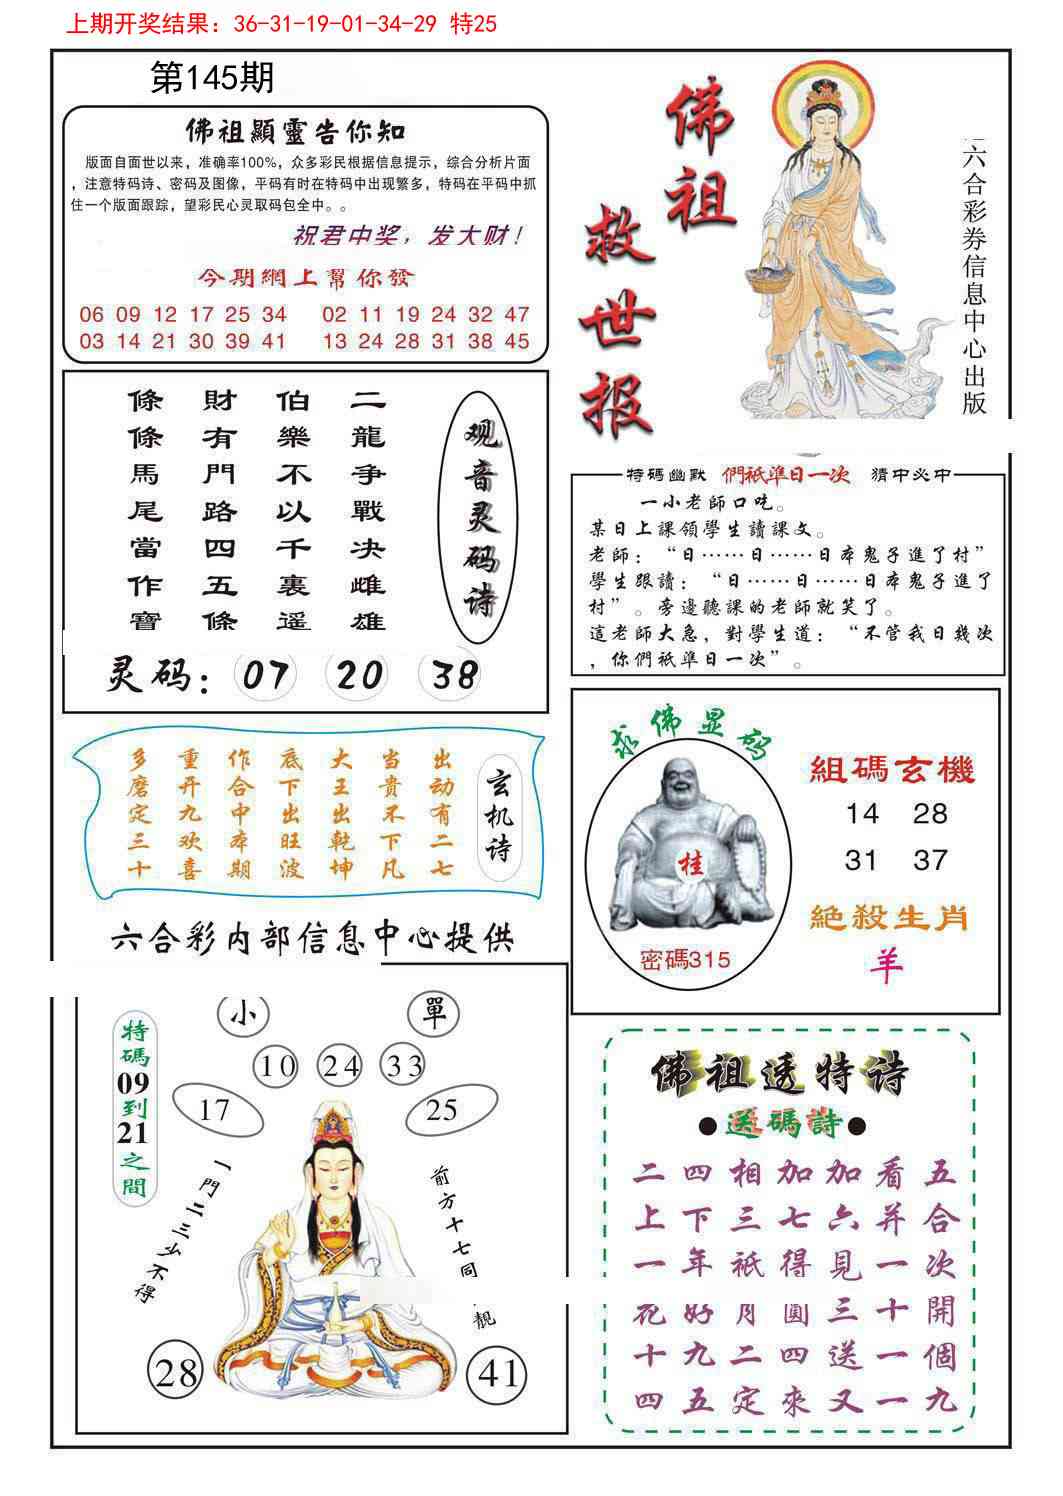 上期开奖结果：36-31-19-01-34-29 特25
第145期
佛祖顯靈告你知
版面自面世以来，准确率100%，众多彩民根据信息提示，综合分析片面
，注意特码诗、密码及图像，平码有时在特码中出现繁多，特码在平码中抓
住一个版面跟踪，望彩民心灵取码包全中。。
祝君中奖，发大财！
今期網上幫你發
06 09 12 17 25 34 02 11 19 24 32 47
03 14 21 30 39 41 13 24 28 31 38 45
佛祖
救世报
六合彩券信息中心出版
观音灵码诗
二龍争戰决雌雄
伯樂不以千裏遥
財有門路四五條
條條馬尾當作寶
灵码：07 20 38
特碼幽默 們祇準日一次 猜中必中
一小老師口吃。
某日上課領學生讀課文。
老師：“日……日……日本鬼子進了村”
學生跟讀：“日……日……日本鬼子進了
村”。旁邊聽課的老師就笑了。
這老師大急，對學生道：“不管我日幾次
，你們祇準日一次”。
玄机诗
出动有二七
当贵不下凡
大王出乾坤
底下出旺波
作合中本期
重开九欢喜
多磨定三十
六合彩内部信息中心提供
求佛显码
桂
密碼315
組碼玄機
14 28
31 37
絕殺生肖
羊
特碼09到21之間
小 單
10 24 33
17 25
一門二三少不得
前方十七同 靓
28 41
佛祖透特诗
●送碼詩●
二四相加加看五
上下三七六并合
一年祇得見一次
花好月圓三十開
十九二四送一個
四五定來又一九